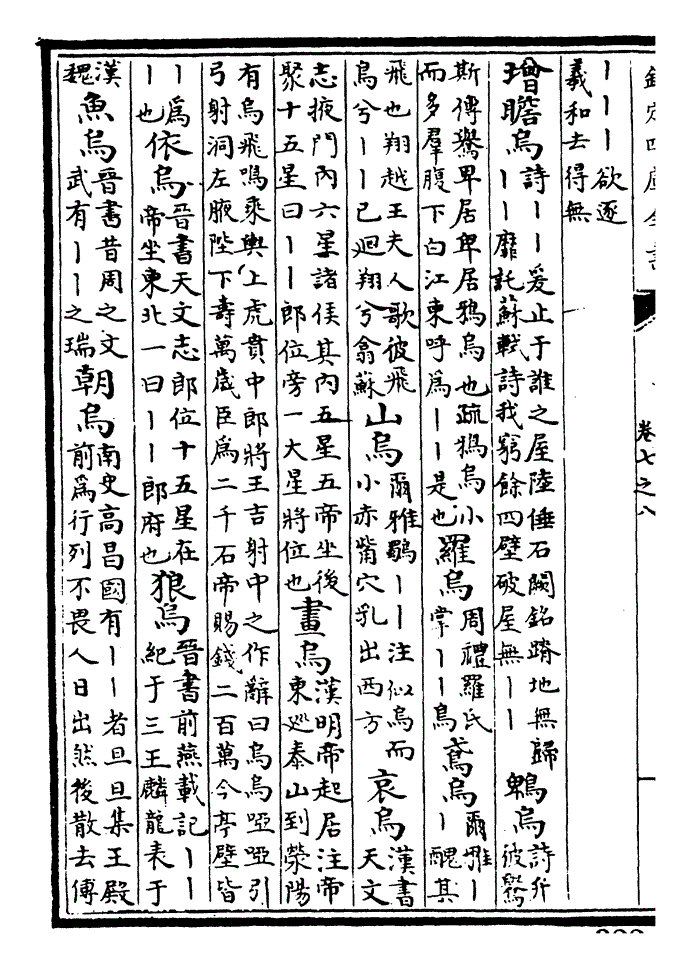 欽定四庫全書
卷七之八
丨丨丨欲逐
羲和去得無
增瞻烏
詩丨丨爰止于誰之屋陸倕石闕銘踣地無歸
丨丨靡託蘇軾詩我窮餘四壁破屋無丨丨
鵯烏
詩弁
彼鸒
斯傳鸒卑居卑居鴉烏也疏鵯烏小
而多羣腹下白江東呼為丨丨是也
羅烏
周禮羅氏
掌丨丨鳥
鳶烏
爾雅丨
丨醜其
飛也翔越王夫人歌彼飛
烏兮丨丨已迴翔兮翕蘇
山烏
爾雅鸀丨丨注似烏而
小赤觜穴乳出西方
哀烏
漢書
天文
志掖門內六星諸侯其內五星五帝坐後
聚十五星曰丨丨郎位旁一大星將位也
畫烏
漢明帝起居注帝
東巡泰山到滎陽
有烏飛鳴乘輿上虎賁中郎將王吉射中之作辭曰烏烏啞啞引
弓射洞左腋陛下壽萬歲臣為二千石帝賜錢二百萬今亭壁皆
丨為
丨也
依烏
晉書天文志郎位十五星在
帝坐東北一曰丨丨郎府也
狼烏
晉書前燕載記丨丨
紀于三王麟龍表于
漢
魏
魚烏
晉書昔周之文
武有丨丨之瑞
朝烏
南史高昌國有丨丨者旦旦集王殿
前為行列不畏人日出然後散去傳